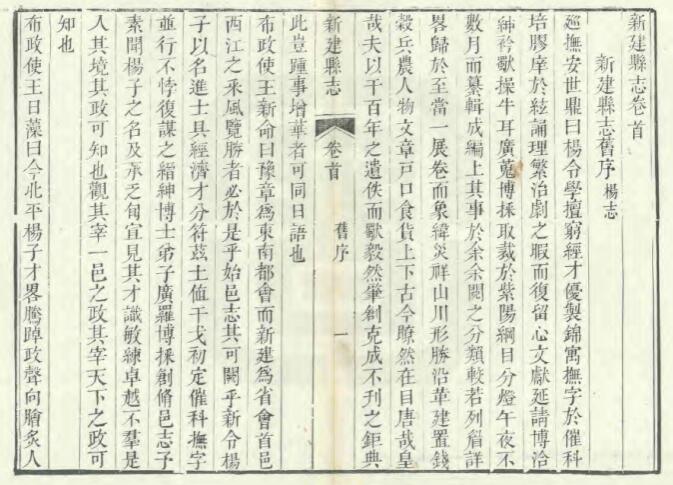 新建縣志卷首
新建縣志舊序 楊志
巡撫安世鼎曰楊令學擅窮經才優製錦寓撫字於催科
培膠庠於絃誦理繁治劇之暇而復留心文獻延請博洽
紳衿歃操牛耳廣蒐博採取裁於紫陽綱目分燈午夜不
數月而纂輯成編上其事於余余閱之分類較若列眉詳
畧歸於至當一展卷而象緯災祥山川形勝沿革建置錢
穀兵農人物文章戸口食貨上下古今瞭然在目唐哉皇
哉夫以千百年之遺佚而獸毅然肇創克成不刋之鉅典
新建縣志 卷首 舊序 一
此豈踵事增華者可同日語也
布政使王新命曰豫章為東南都會而新建為省會首邑
西江之釆風覽勝者必於是乎始邑志其可闕乎新令楊
子以名進士具經濟才分符茲土值干戈初定催科撫字
並行不悖復謀之縉紳博士弟子廣羅博採創脩邑志予
素聞楊子之名及承乏旬宣見其才識敏練卓越不羣是
人其境其政可知也觀其宰一邑之政其宰天下之政可
知也
布政使王日藻曰今北平楊子才畧騰踔政聲向膾炙人